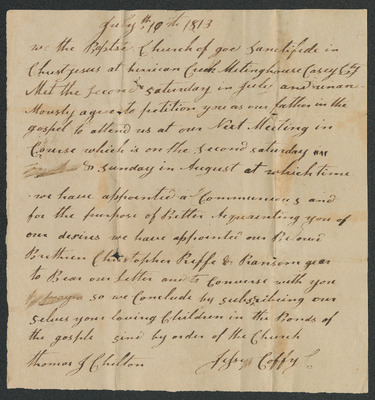 July th 10th 1813
we the Baptis Church of god Sanctifide in
Christ Jesus at Creek Meetinghouse Casey Cty
Met the second Saturday in July and unan
Mously agree to petition you as our father in the
gospel to attend us at our Next Meeting in
Course which is on the second saturday
& sunday in August at which time
we have appointed a Communeous and
for the purpose of Better Aquenting you of
our desires we have appointed our Beloved
Brethren Christopher Riffe & Ransom gear
to Bear our Letter and to Converse with you
so we Conclude by subscribing our
selves your loving Children in the Bonds of
the gosple sind by order of the Church
thomas J Chelton Coffy